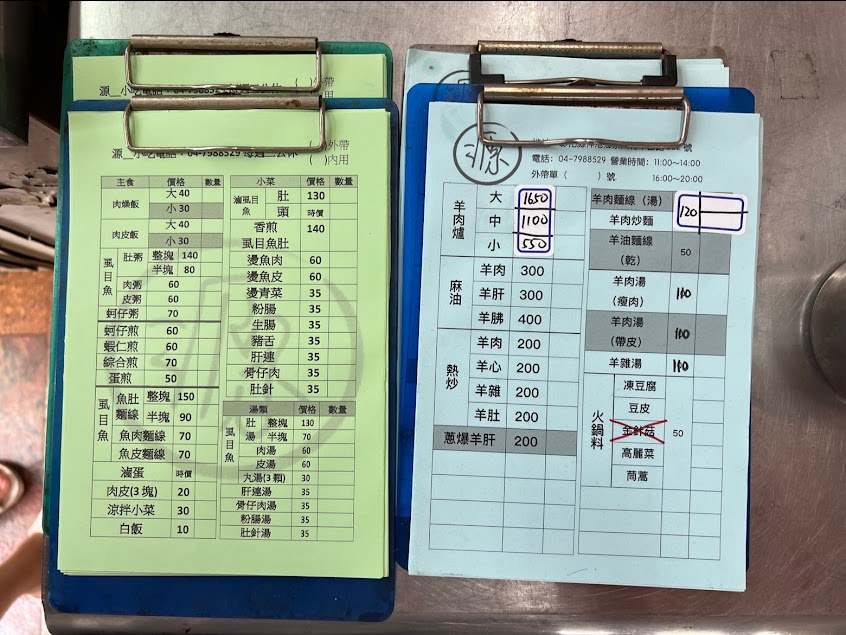 源 小吃電話：04-7988529 每週二公休
( )外帶
( )內用
主食 價格 數量
肉燥飯 大 40
小 30
肉皮飯 大 40
小 30
虱目魚 肚粥 整塊 140
半塊 80
肉粥 60
皮粥 60
蚵仔粥 70
蚵仔煎 60
蝦仁煎 60
綜合煎 70
蛋煎 50
虱目魚 魚肚麵線 整塊 150
半塊 90
魚肉麵線 70
魚皮麵線 70
滷蛋 時價
肉皮(3 塊) 20
涼拌小菜 30
白飯 10
小菜 價格 數量
滷虱目魚 肚 130
頭 時價
香煎虱目魚肚 140
燙魚肉 60
燙魚皮 60
燙青菜 35
粉腸 35
生腸 35
豬舌 35
肝連 35
骨仔肉 35
肚針 35
湯類 價格 數量
虱目魚 肚湯 整塊 130
半塊 70
肉湯 60
皮湯 60
丸湯(3 顆) 30
肝連湯 35
骨仔肉湯 35
粉腸湯 35
肚針湯 35
源
電話：04-7988529 營業時間：11:00~14:00
外帶單 ( ) 號 16:00~20:00
羊肉爐 大 1650
中 1100
小 550
麻油 羊肉 300
羊肝 300
羊胇 400
熱炒 羊肉 200
羊心 200
羊雜 200
羊肚 200
蔥爆羊肝 200
羊肉麵線（湯） 120
羊肉炒麵
羊油麵線（乾） 50
羊肉湯（瘦肉） 110
羊肉湯（帶皮） 110
羊雜湯 110
火鍋料 凍豆腐 50
豆皮
金針菇
高麗菜
茼蒿